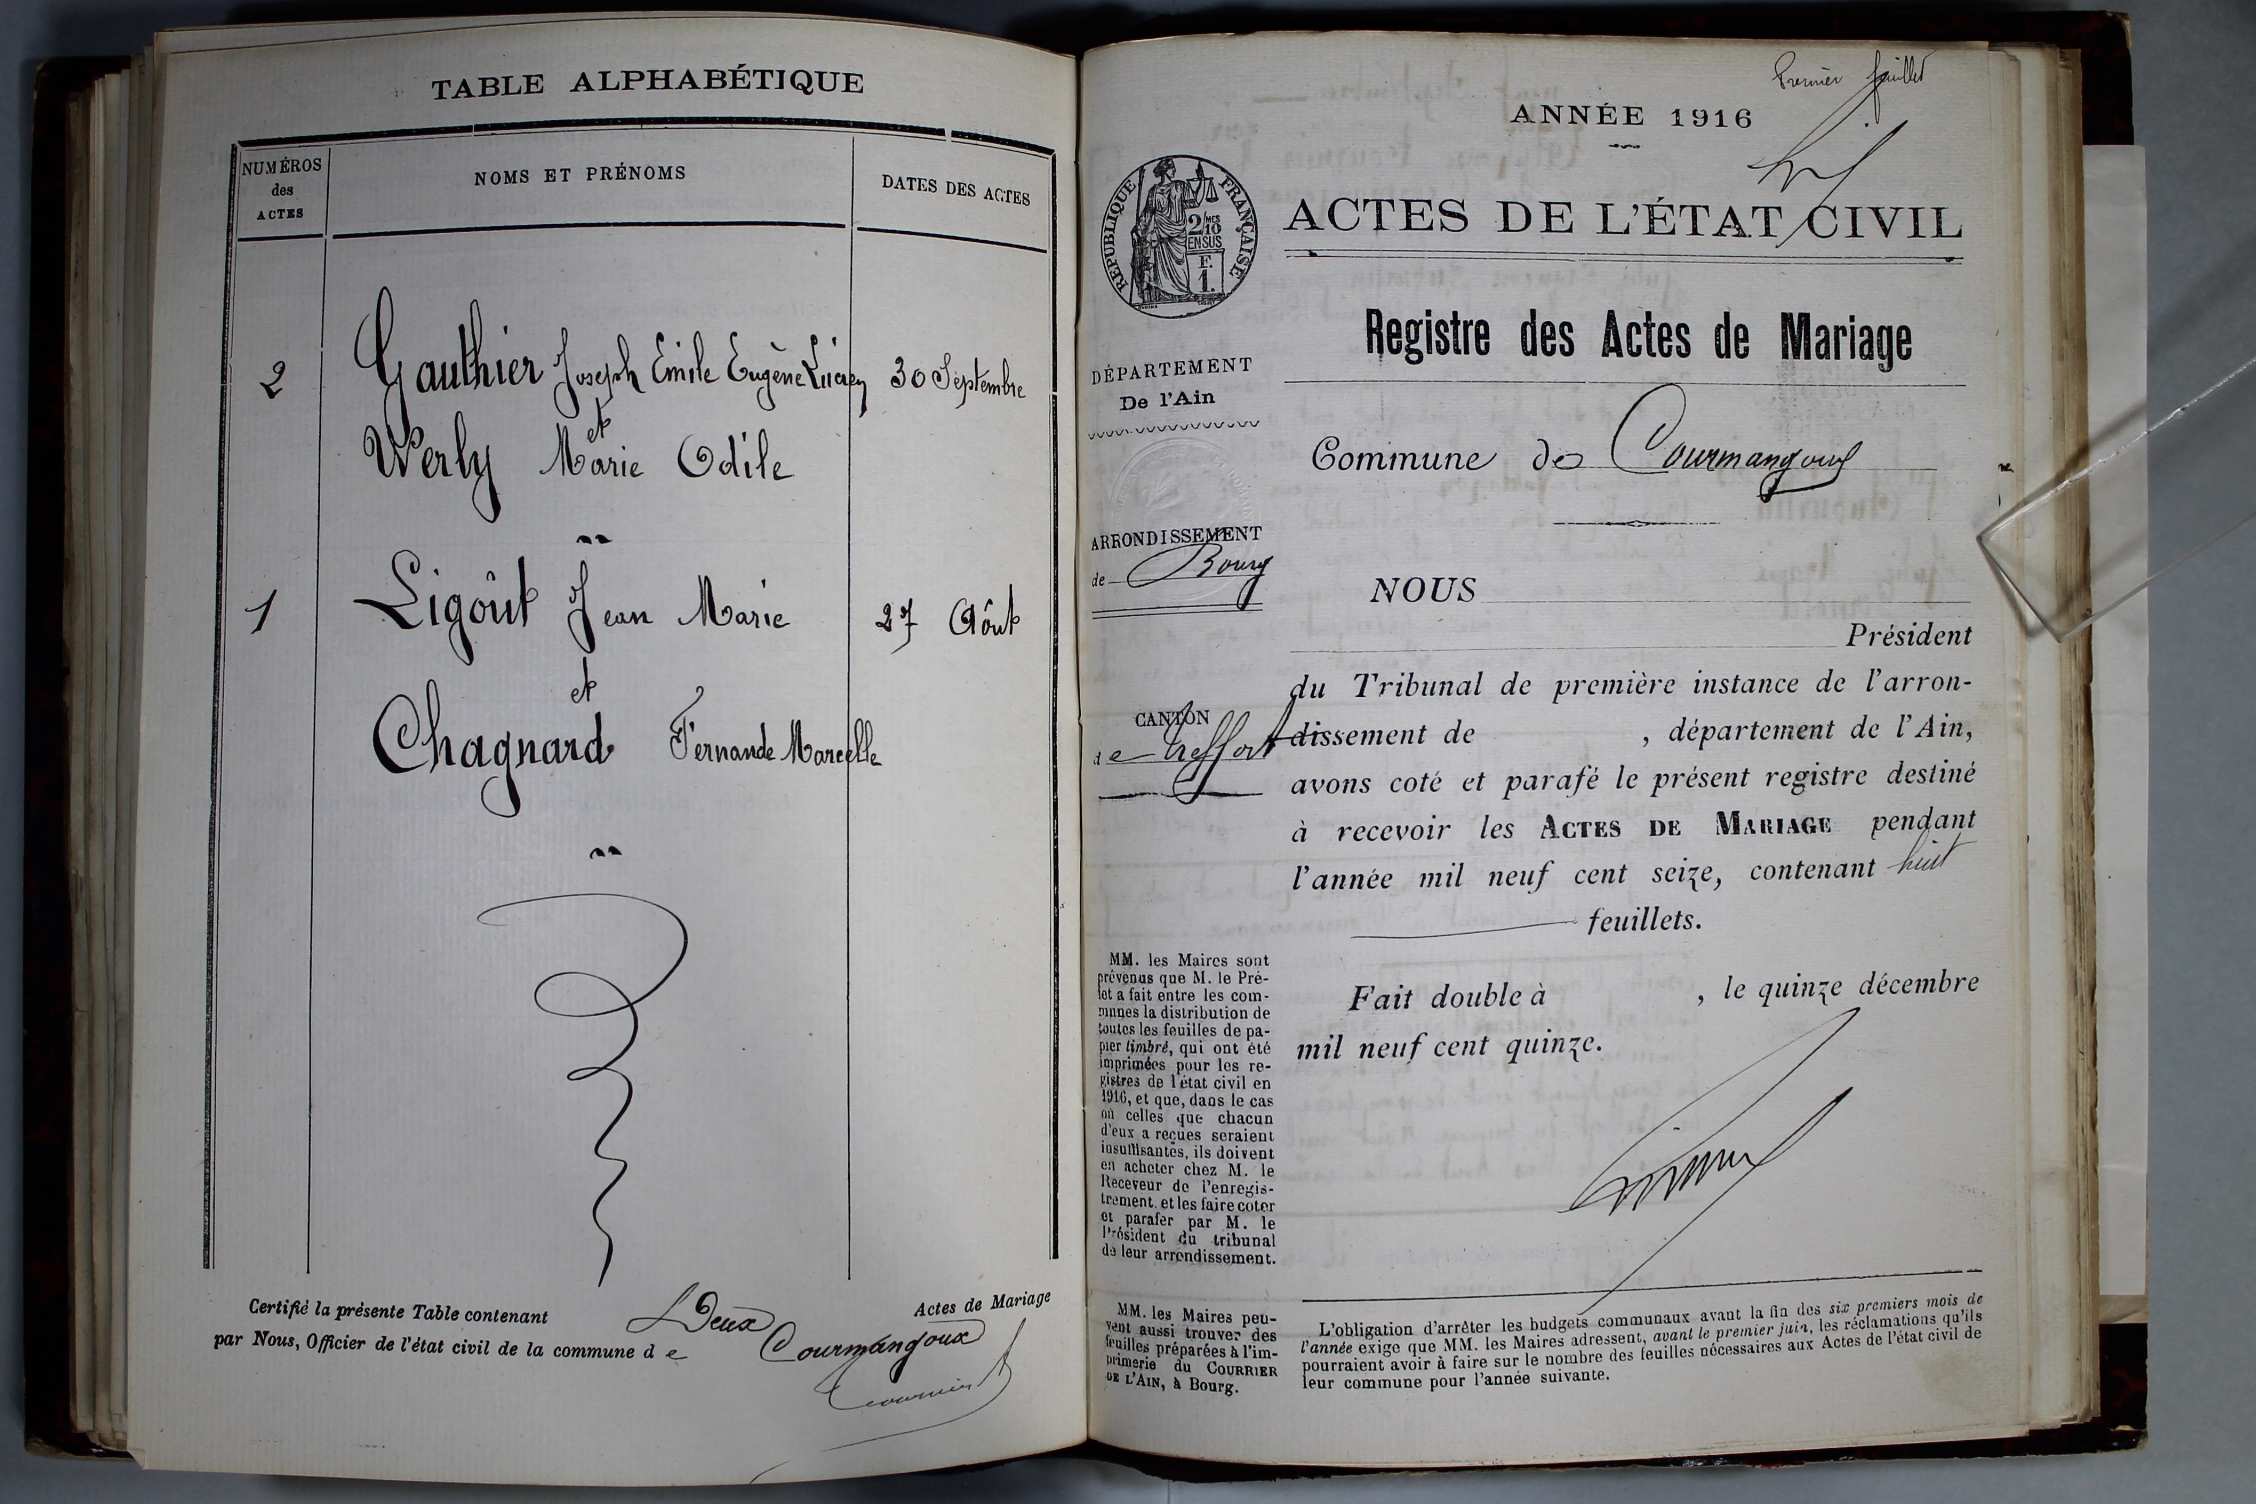 TABLE ALPHABÉTIQUE
NUMÉROS
des
ACTES
NOMS ET PRÉNOMS
DATES DES ACTES
2
Gauthier Joseph Emile Eugène Lucien
30 Septembre
et
Werly Marie Odile
1
Ligoût Jean Marie
27 Aôut
et
Chagnard Fernande Marcelle
Certifié la présente Table contenant Deux Actes de Mariage
par Nous, Officier de l'état civil de la commune de Courmangoux
Premier feuillet
ANNÉE 1916
RÉPUBLIQUE FRANÇAISE
2/10 MES
EN SUS
F.
1.
ACTES DE L'ÉTAT CIVIL
Registre des Actes de Mariage
DÉPARTEMENT
De l'Ain
Commune de Courmangoux
ARRONDISSEMENT
de Bourg
CANTON
de Treffort
NOUS
Président
du Tribunal de première instance de l'arron-
dissement de , département de l'Ain,
avons coté et parafé le présent registre destiné
à recevoir les ACTES DE MARIAGE pendant
l'année mil neuf cent seize, contenant huit
feuillets.
Fait double à , le quinze décembre
mil neuf cent quinze.
MM. les Maires sont
prévenus que M. le Pré-
fet a fait entre les com-
munes la distribution de
toutes les feuilles de pa-
pier timbré, qui ont été
imprimées pour les re-
gistres de l'état civil en
1916, et que, dans le cas
où celles que chacun
d'eux a reçues seraient
insuffisantes, ils doivent
en acheter chez M. le
Receveur de l'enregis-
trement, et les faire coter
et parafer par M. le
Président du tribunal
de leur arrondissement.
MM. les Maires peu-
vent aussi trouver des
feuilles préparées à l'im-
primerie du COURRIER
DE L'AIN, à Bourg.
L'obligation d'arrêter les budgets communaux avant la fin des six premiers mois de
l'année exige que MM. les Maires adressent, avant le premier juin, les réclamations qu'ils
pourraient avoir à faire sur le nombre des feuilles nécessaires aux Actes de l'état civil de
leur commune pour l'année suivante.